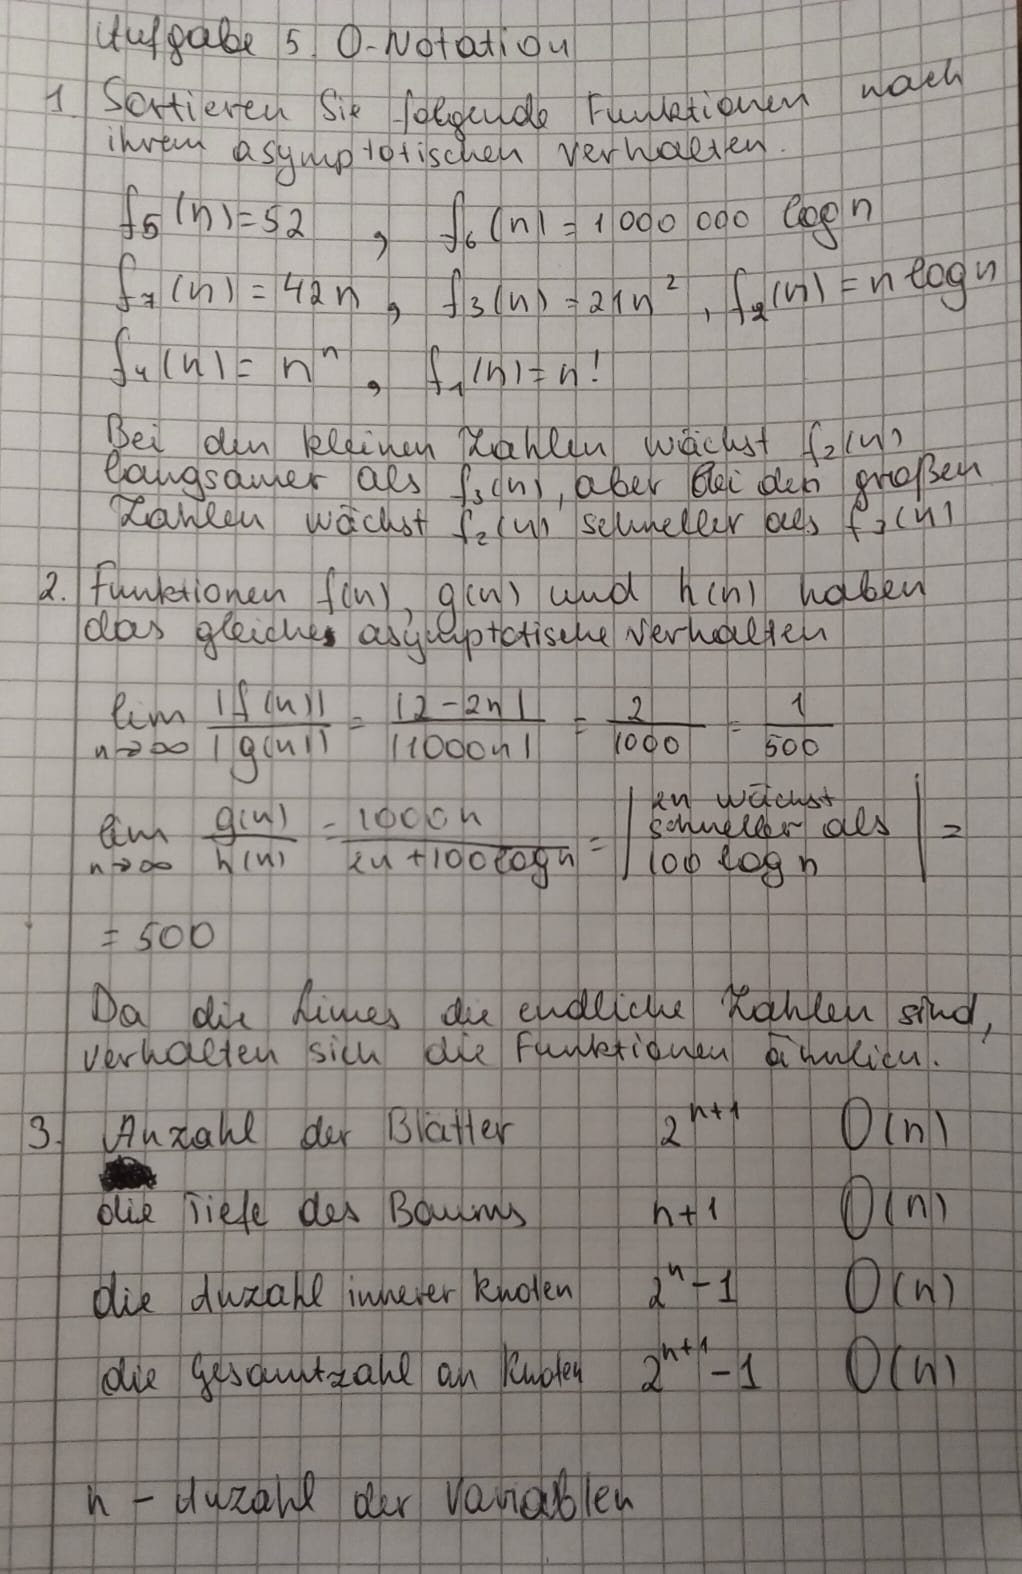 Aufgabe 5. O-Notation
1. Sortieren Sie folgende Funktionen nach
ihrem asymptotischen verhalten.
f₅(n)=52 , f₆(n)=1000 000 log n
f₇(n)=42n , f₃(n)=21n² , f₂(n)=n log n
f₄(n)=nⁿ , f₁(n)=n!
Bei den kleinen Zahlen wächst f₂(n)
langsamer als f₃(n), aber bei den großen
Zahlen wächst f₂(n) schneller als f₃(n)
2. Funktionen f(n), g(n) und h(n) haben
das gleiches asymptotische Verhalten
lim n→∞ |f(n)| / |g(n)| = |2-2n| / |1000n| = 2/1000 = 1/500
lim n→∞ g(n) / h(n) = 1000n / 2n+100 log n = | 2n wächst schneller als 100 log n | =
= 500
Da die Limes die endliche Zahlen sind,
verhalten sich die Funktionen ähnlich.
3. Anzahl der Blätter 2ⁿ⁺¹ O(n)
die Tiefe des Baums n+1 O(n)
die Anzahl innerer Knoten 2ⁿ-1 O(n)
die Gesamtzahl an Knoten 2ⁿ⁺¹-1 O(n)
n - Anzahl der Variablen